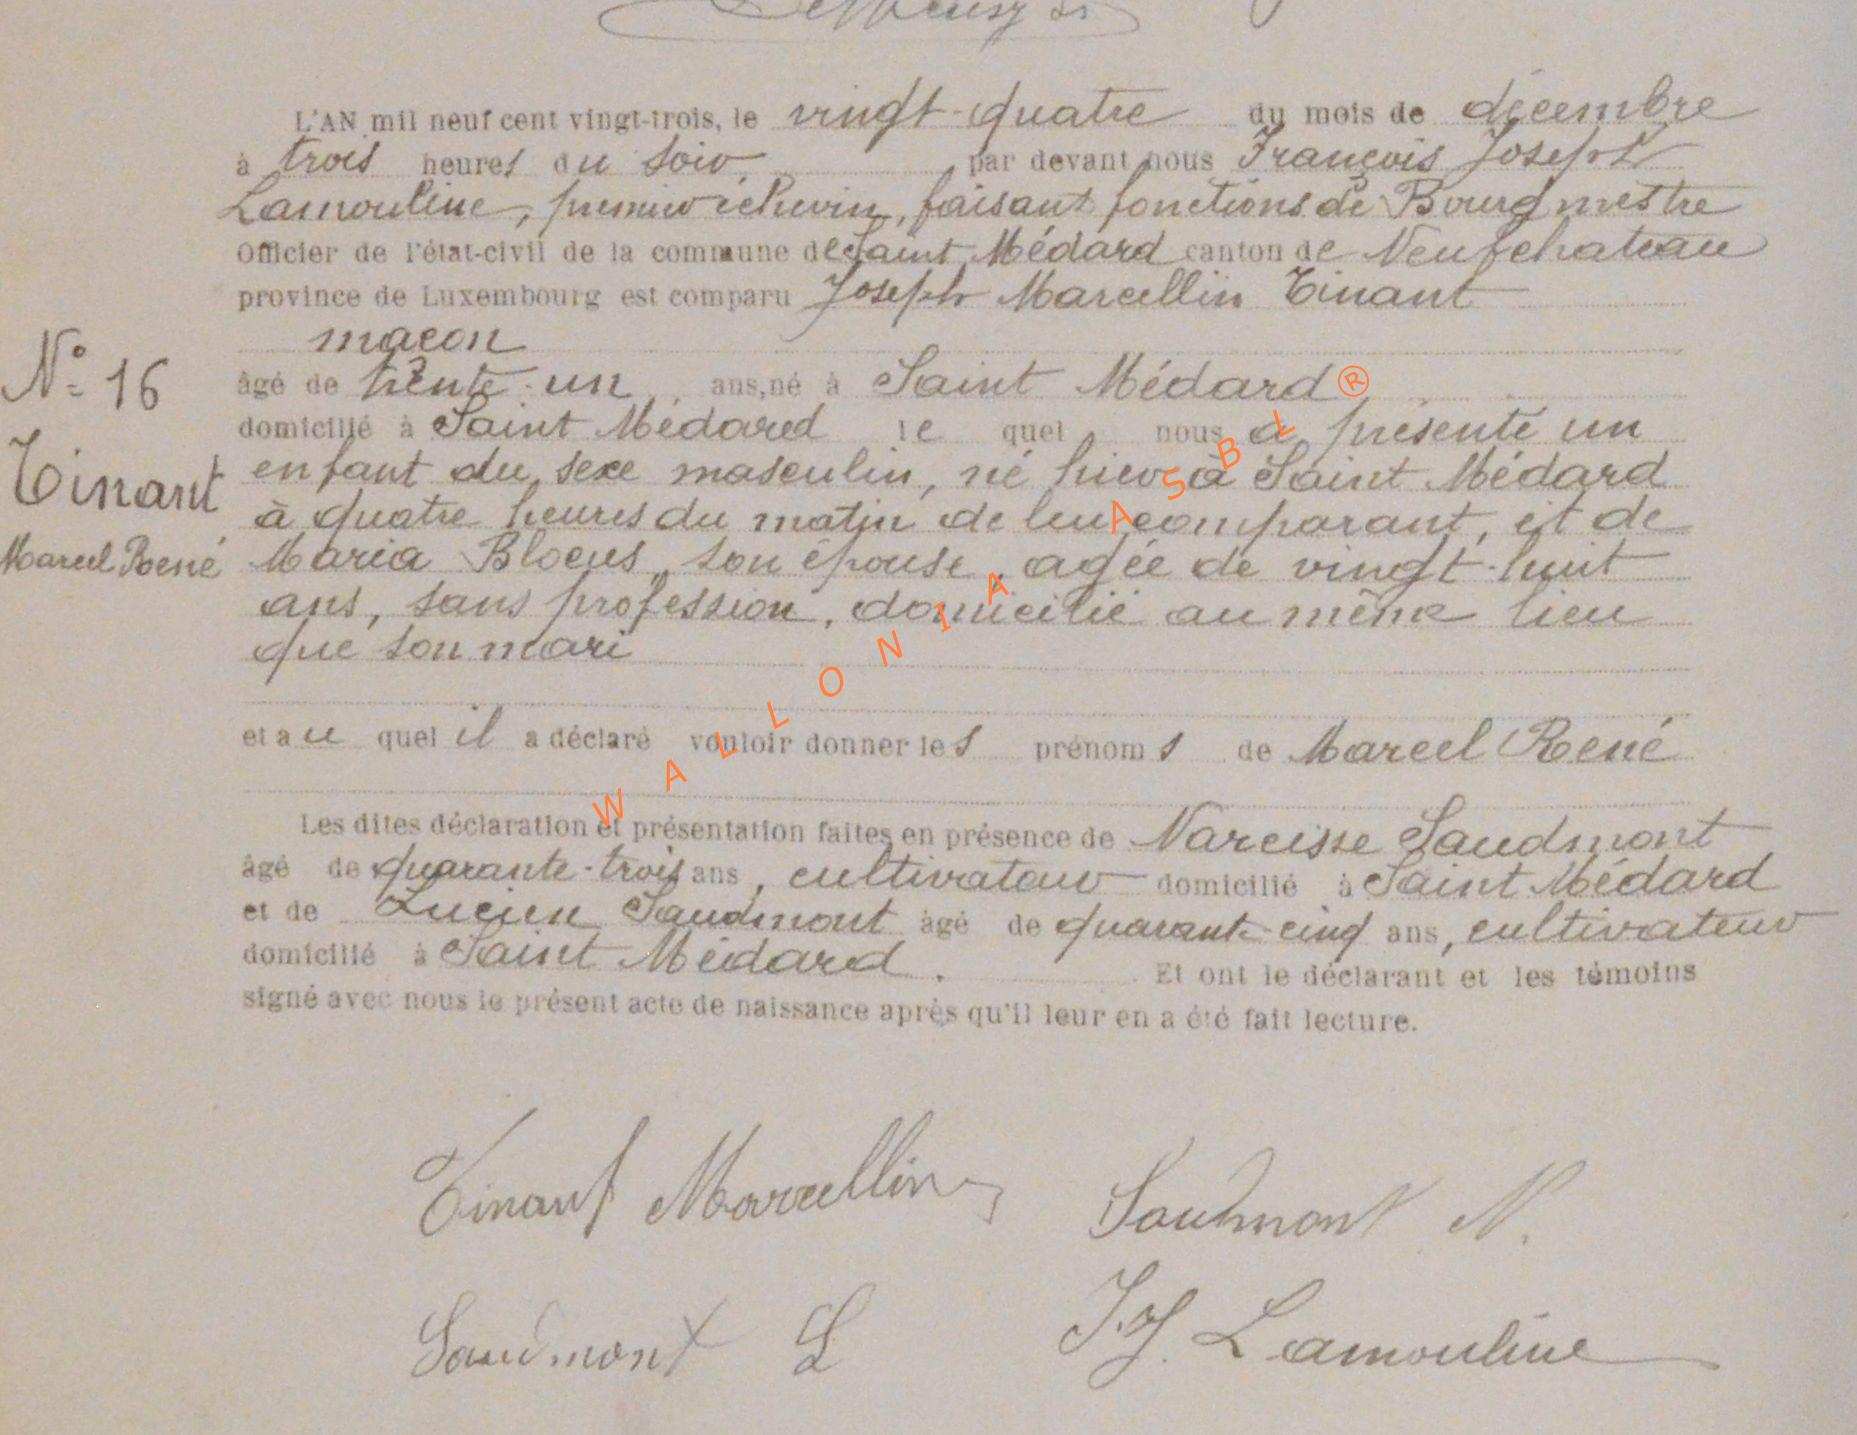 L'AN mil neuf cent vingt-trois, le vingt-quatre du mois de décembre
à trois heures du soir par devant nous François Joseph
Lamouline, premier échevin, faisant fonctions de Bourgmestre
Officier de l'état-civil de la commune de Saint Médard canton de Neufchateau
province de Luxembourg est comparu Joseph Marcellin Tinant
maçon
âgé de trente-un ans, né à Saint Médard
domicilié à Saint Médard le quel nous a présenté un
enfant du sexe masculin, né hier à Saint Médard
à quatre heures du matin de lui comparant, et de
Maria Blocus, son épouse, agée de vingt-huit
ans, sans profession, domicilié au même lieu
que son mari
et au quel il a déclaré vouloir donner les prénoms de Marcel René
Les dites déclaration et présentation faites en présence de Narcisse Saudmont
âgé de quarante-trois ans, cultivateur domicilié à Saint Médard
et de Lucien Saudmont âgé de quarante-cinq ans, cultivateur
domicilié à Saint Médard. Et ont le déclarant et les témoins
signé avec nous le présent acte de naissance après qu'il leur en a été fait lecture.
N° 16
Tinant
Marcel René
Tinant Marcellin
Saudmont N.
Saudmont L
F.J. Lamouline
WALLONIA ASBL®